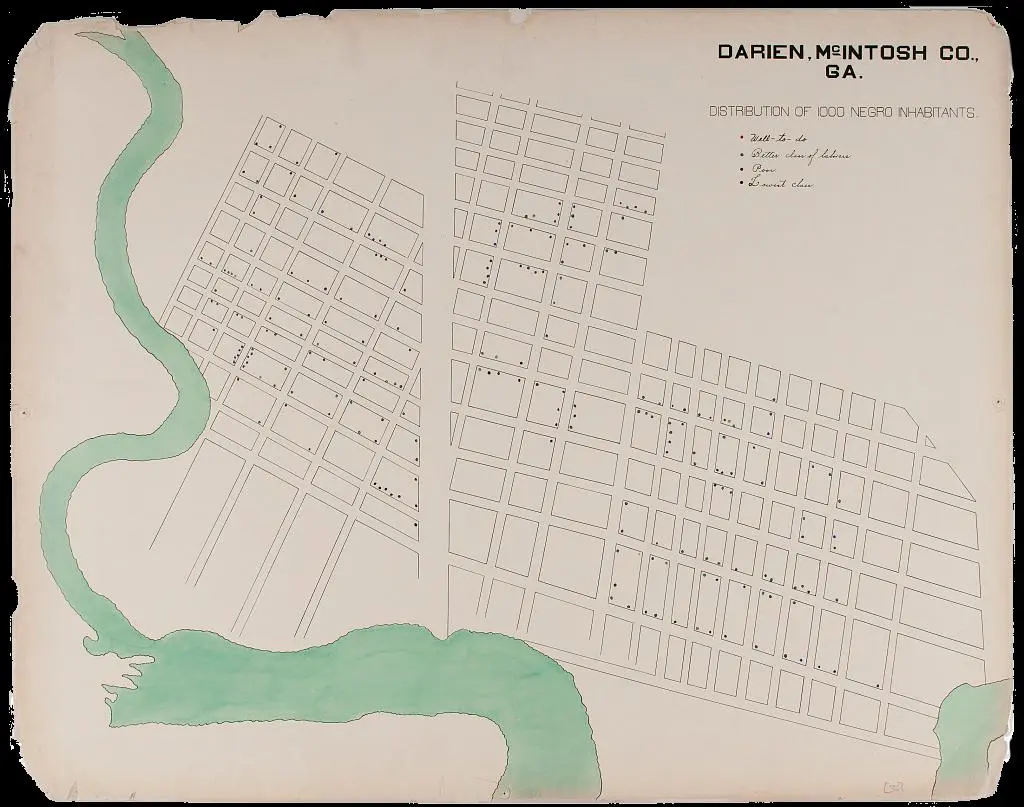 DARIEN, McINTOSH CO.,
GA.
DISTRIBUTION OF 1000 NEGRO INHABITANTS.
Well-to-do
Better class of laborers
Poor
Lowest class